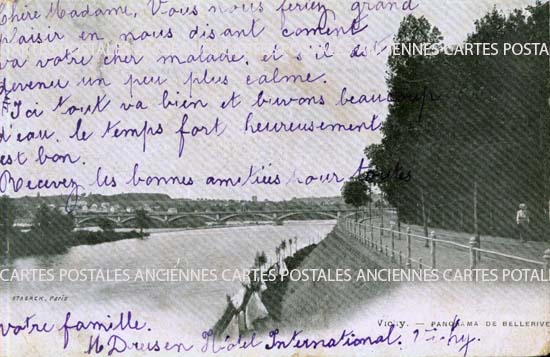 Chère Madame, Vous nous feriez grand
plaisir en nous disant coment
va votre cher malade, et s'il est
devenu un peu plus calme.
Ici tout va bien et buvons beaucoup
d'eau, le temps fort heureusement
est bon.
Recevez les bonnes amitiés pour toutes
votre famille.
M Dreisen Hôtel International. Vichy.
STAERCK, PARIS
VICHY. — PANORAMA DE BELLERIVE
CARTES POSTALES ANCIENNES CARTES POSTALES ANCIENNES CARTES POSTALES
CARTES POSTALES ANCIENNES CARTES POSTALES ANCIENNES CARTES POSTALES